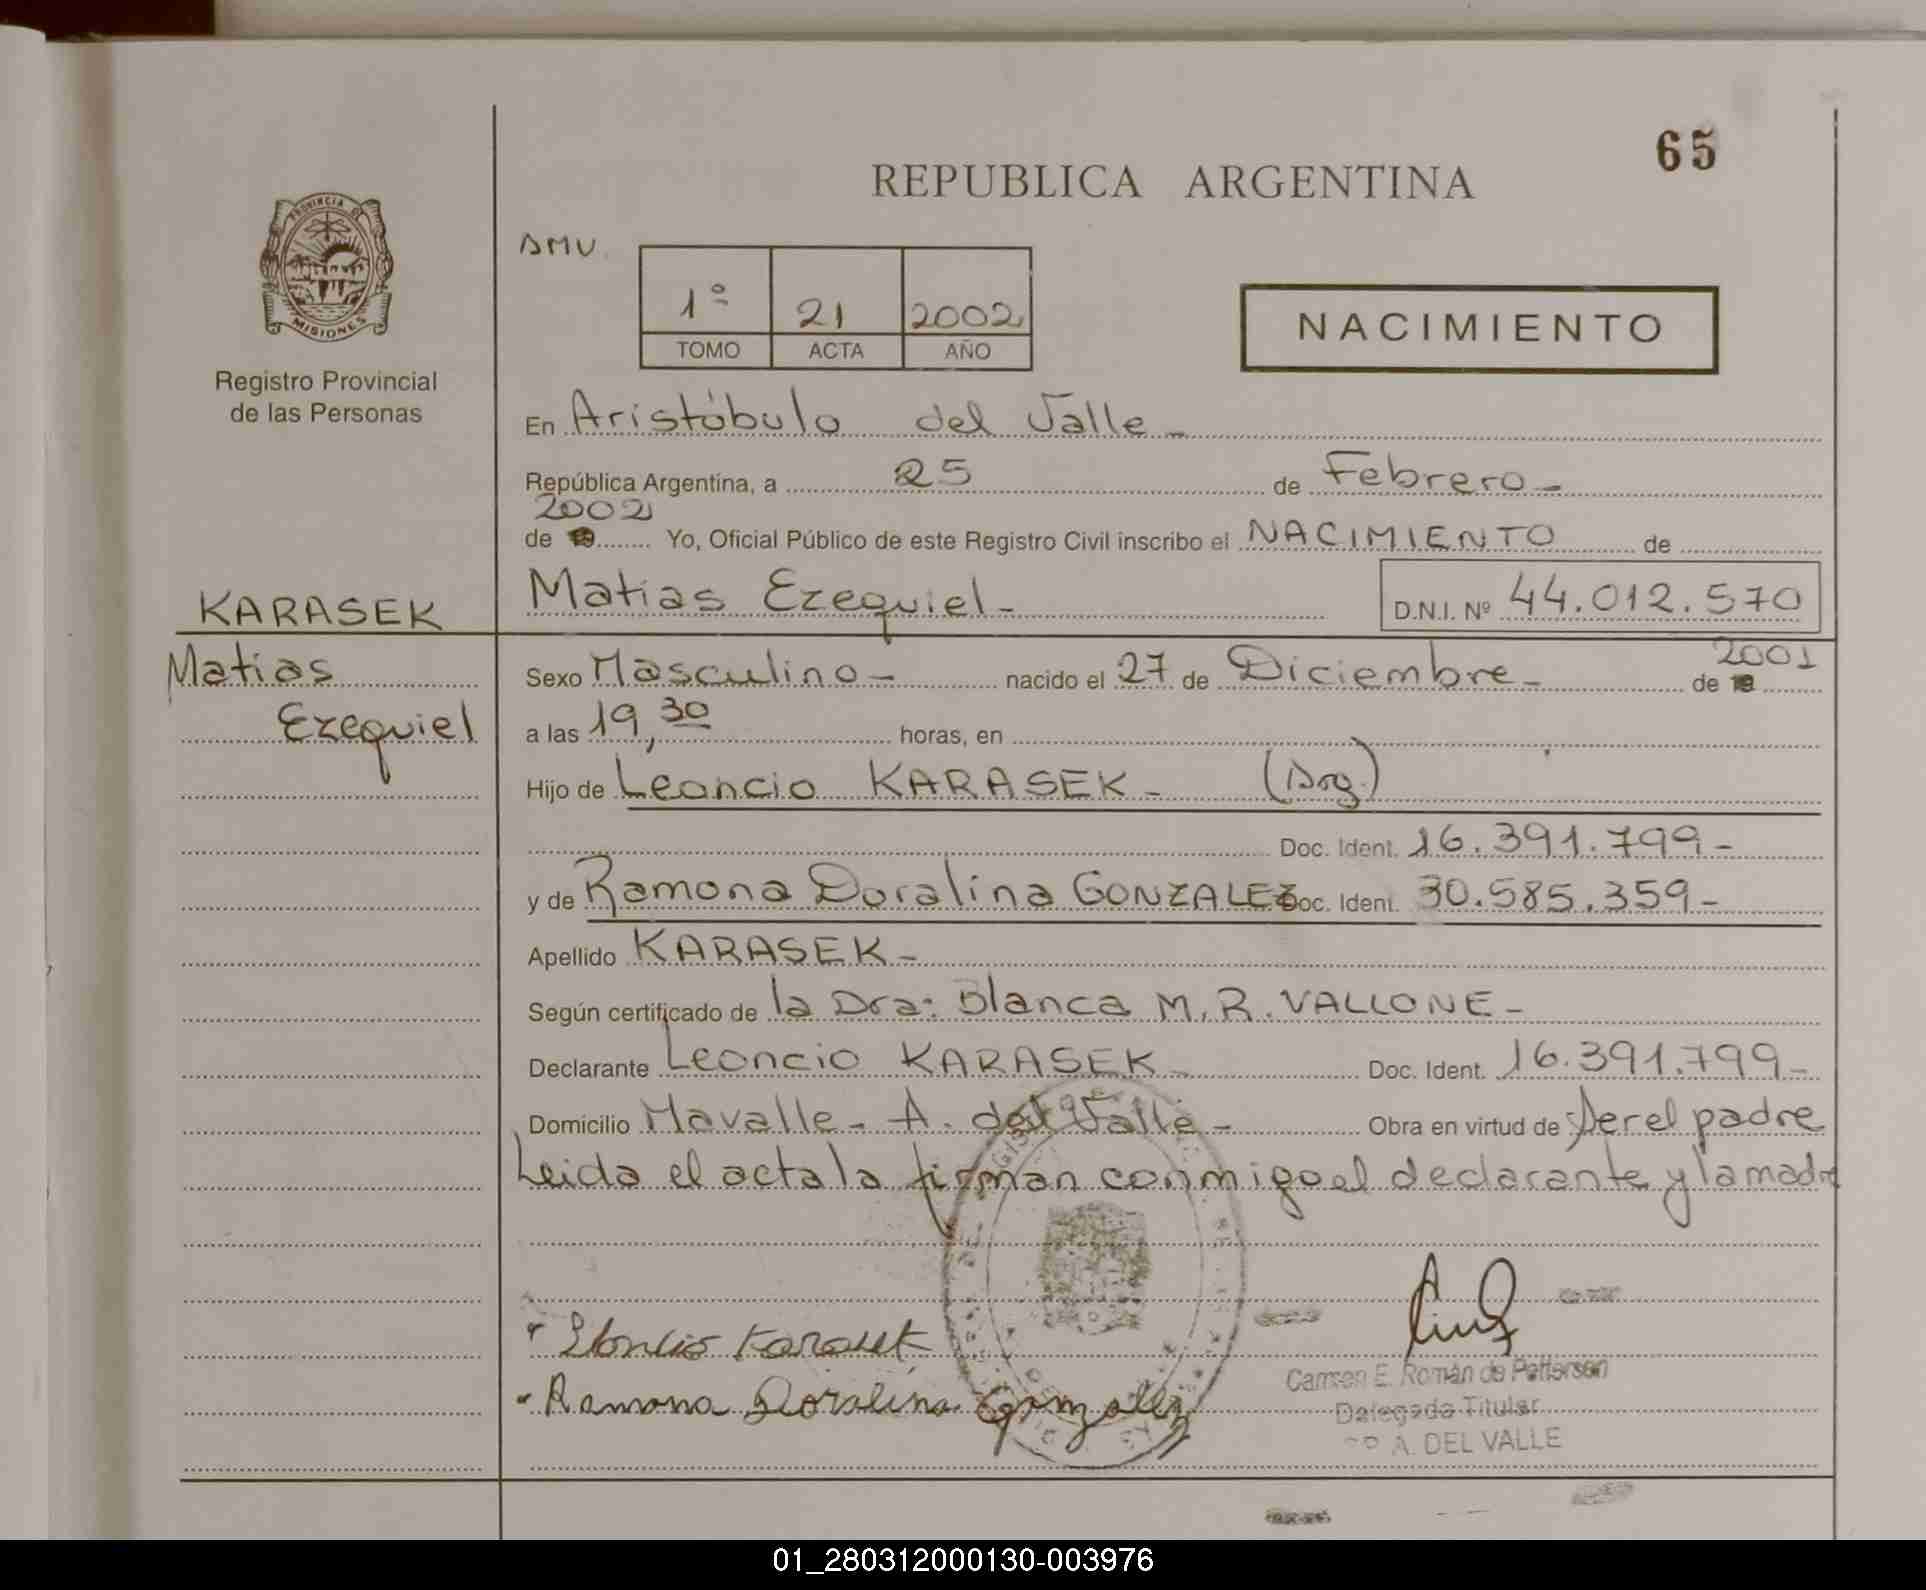 65
REPUBLICA ARGENTINA
PROVINCIA DE
MISIONES
Registro Provincial
de las Personas
DMV.
1º 21 2002
TOMO ACTA AÑO
NACIMIENTO
En Aristóbulo del Valle -
República Argentina, a 25 de Febrero -
2002
de 19 Yo, Oficial Público de este Registro Civil inscribo el NACIMIENTO de
KARASEK
Matias Ezequiel - D.N.I. Nº 44.012.570
Matias
Ezequiel
Sexo Masculino - nacido el 27 de Diciembre - de 2001
a las 19,30 horas, en
Hijo de Leoncio KARASEK - (Arg.)
Doc. Ident. 16.391.799 -
y de Ramona Doralina GONZALEZ Doc. Ident. 30.585.359 -
Apellido KARASEK -
Según certificado de la Dra: Blanca M. R. VALLONE -
Declarante Leoncio KARASEK - Doc. Ident. 16.391.799 -
Domicilio Mavalle - A. del Valle - Obra en virtud de ser el padre
Leida el acta la firman conmigo el declarante y la madre
Leoncio Karasek
Ramona Doralina Gonzalez
Carmen E. Román de Petterson
Delegada Titular
A. DEL VALLE
01_280312000130-003976